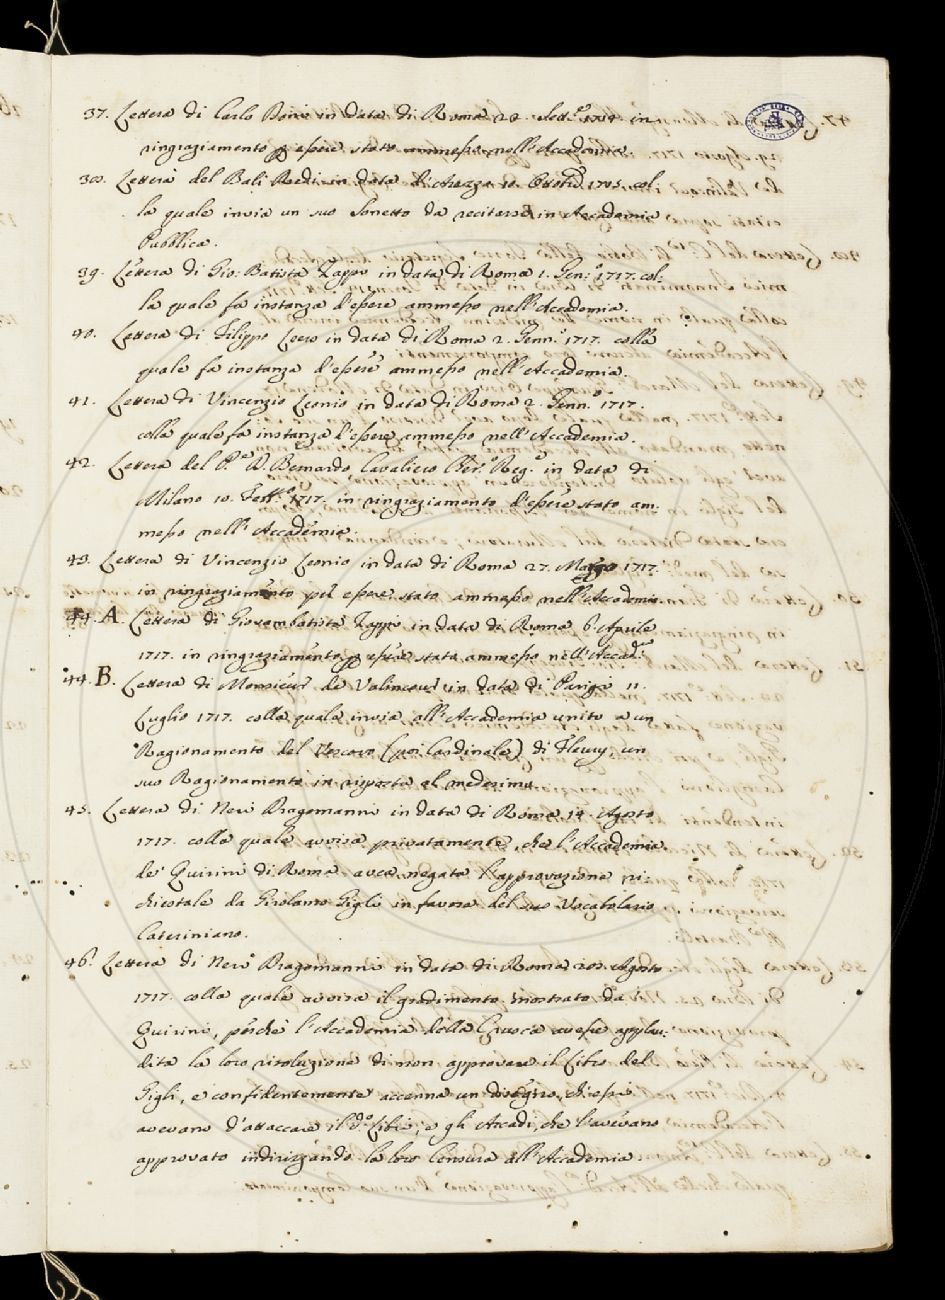 37. Lettera di Carlo Doni in data di Roma 28. Sett.e 1714. in
ringraziamento p essere stato ammesso nell'Accademia.
38. Lettera del Balì Redi in data d'Arezzo 10. Ott. 1715. col
la quale invia un suo Sonetto da recitarsi in Accademia
Pubblica.
39. Lettera di Gio: Batista Zappi in data di Roma 1. Gen.o 1717. col
la quale fa instanza d'essere ammesso nell'Accademia.
40. Lettera di Filippo Leers in data di Roma 2. Genn.o 1717. colla
quale fa instanza d'essere ammesso nell'Accademia.
41. Lettera di Vincenzio Leonio in data di Roma 2. Genn.o 1717.
colla quale fa instanza d'essere ammesso nell'Accademia.
42. Lettera del P. D. Bernardo Cavaliero Cher.o Reg.e in data di
Milano 10. Febb.o 1717. in ringraziamento d'essere stato am-
messo nell'Accademia.
43. Lettera di Vincenzio Leonio in data di Roma 27. Marzo 1717.
in ringraziamento per essere stato ammesso nell'Accademia.
44. A. Lettera di Giovambatista Zappi in data di Roma 6. Aprile
1717. in ringraziamento p essere stato ammesso nell'Accad.a
44. B. Lettera di Monsieur de Valincour in data di Parigi 11.
Luglio 1717. colla quale invia all'Accademia unito a un
Ragionamento del Vescovo (poi Cardinale) di Fleury, un
suo Ragionamento in risposta al medesimo.
45. Lettera di Neri Dragomanni in data di Roma 14. Agosto
1717. colla quale avvisa privatamente, che l'Accademia
de' Quirini di Roma avea negata l'approvazione ri-
chiestale da Girolamo Gigli in favore del suo Vocabolario
Cateriniano.
46. Lettera di Neri Dragomanni in data di Roma 28. Agosto
1717. colla quale avvisa il gradimento mostrato da i
Quirini, perchè l'Accademia della Crusca avesse applau-
dita la loro risoluzione di non approvare il Libro del
Gigli, e confidentemente accenna un disegno, ch'essi
avevano d'attaccare il d.o Libro, e gli Arcadi, che l'avevano
approvato indirizzando la loro Censura all'Accademia.